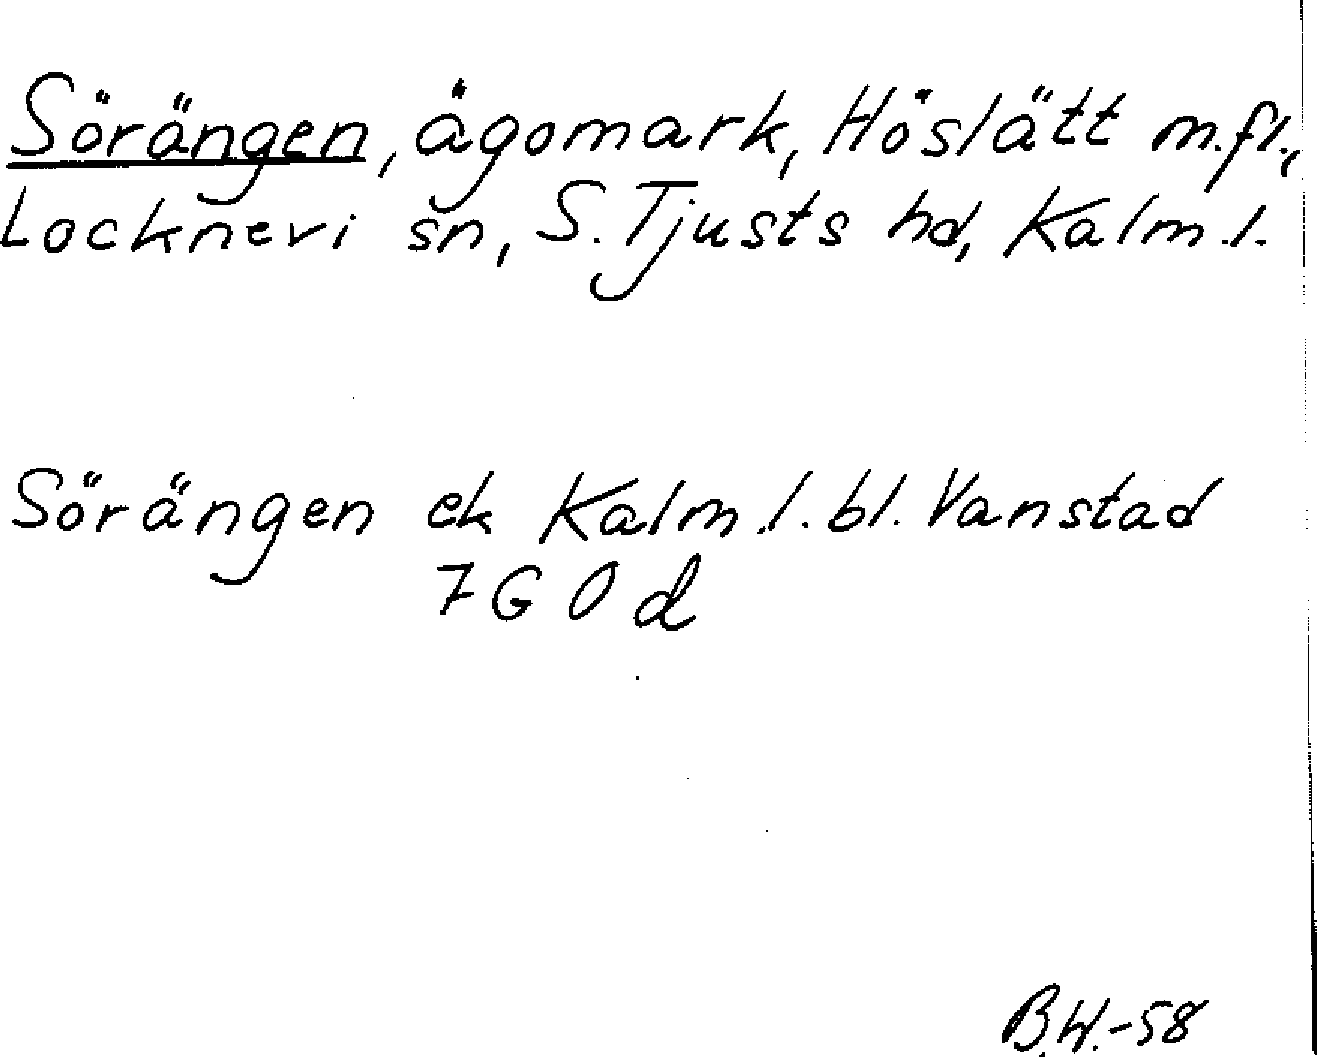 Sörängen, ägomark, Höslätt m.fl.,
Locknevi sn, S. Tjusts hd, Kalm. l.
Sörängen ek Kalm. l. bl. Vanstad
7G 0 d
B.W.-58